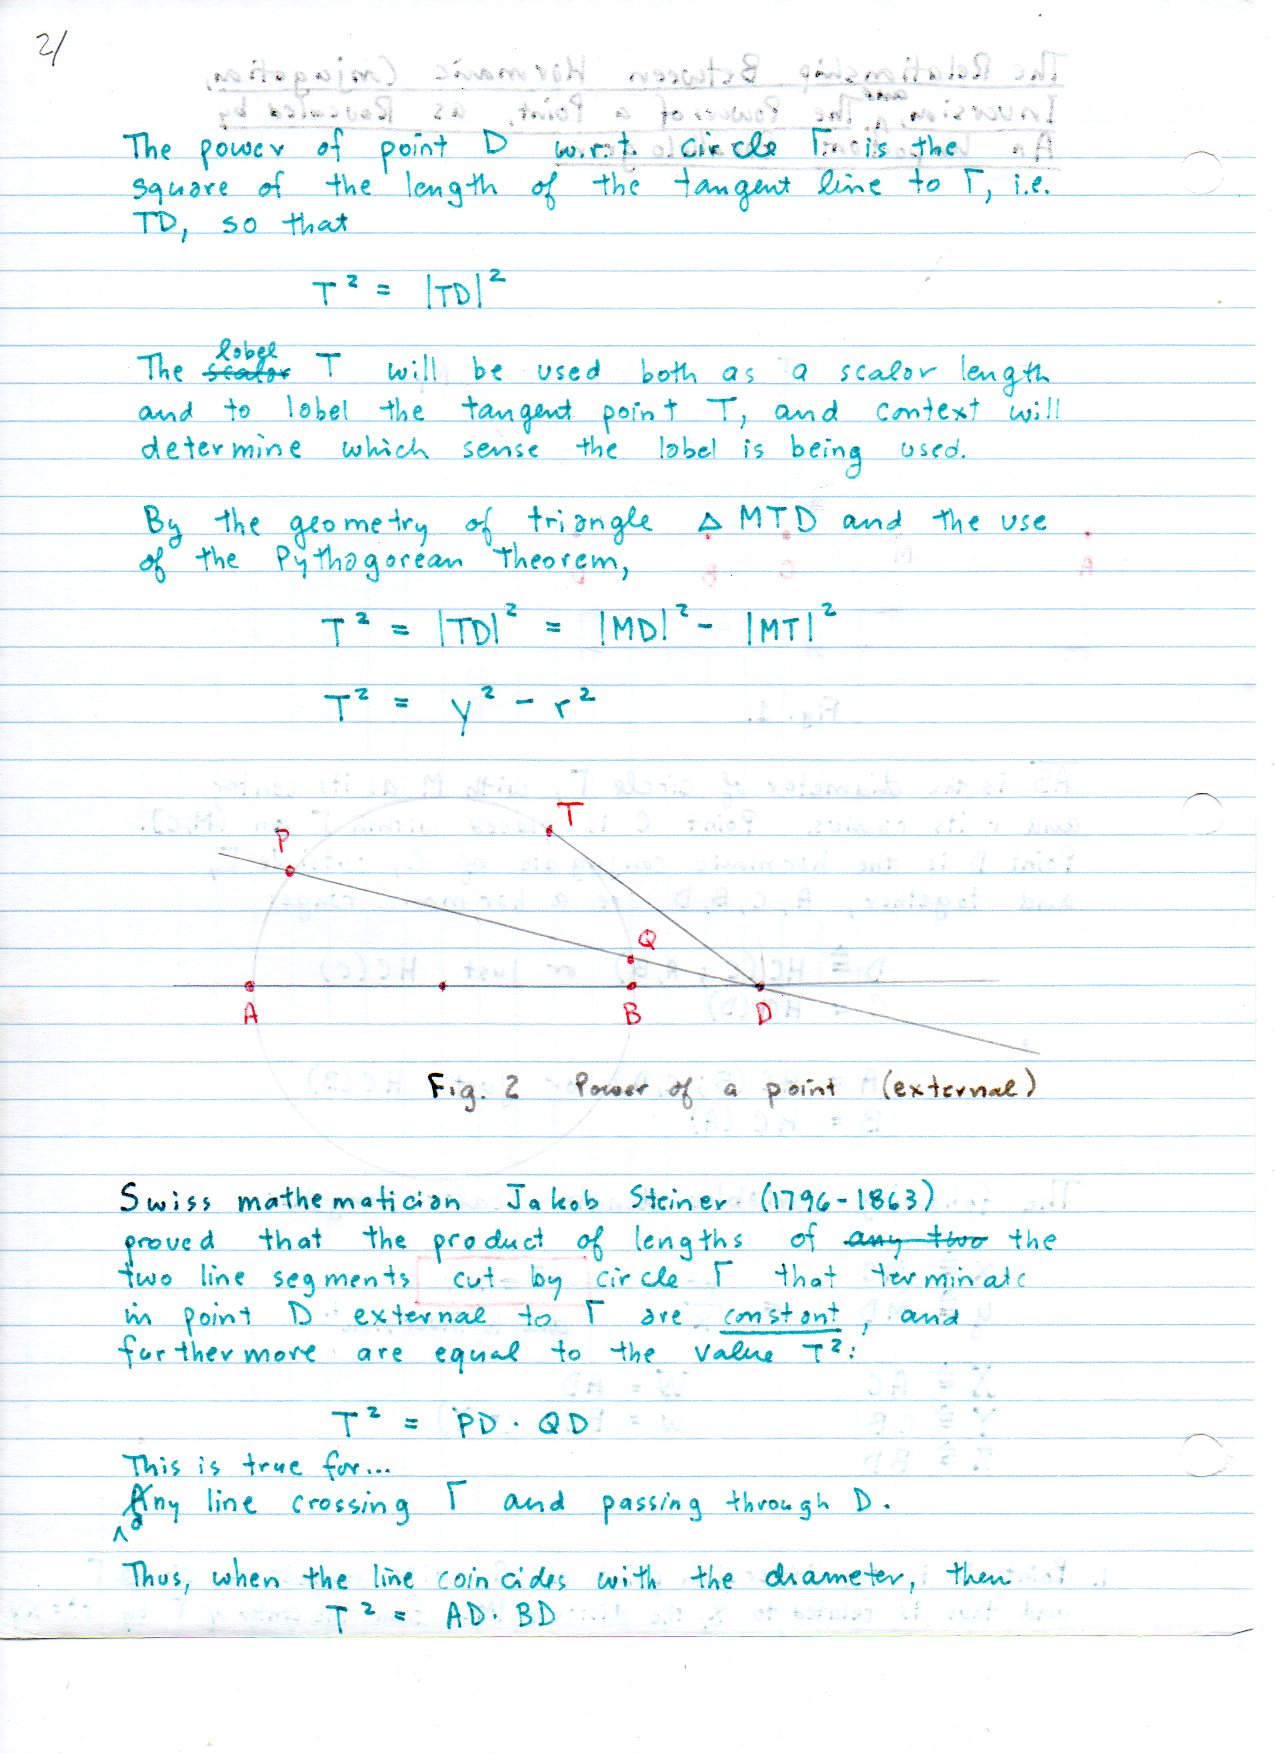 2/
The power of point D w.r.t. circle Γ is the
square of the length of the tangent line to Γ, i.e.
TD, so that
T² = |TD|²
label
The scalar T will be used both as a scalar length
and to label the tangent point T, and context will
determine which sense the label is being used.
By the geometry of triangle △ MTD and the use
of the Pythagorean Theorem,
T² = |TD|² = |MD|² - |MT|²
T² = y² - r²
T
P
Q
A B D
Fig. 2 Power of a point (external)
Swiss mathematician Jakob Steiner (1796-1863)
proved that the product of lengths of any two the
two line segments cut by circle Γ that terminate
in point D external to Γ are constant, and
furthermore are equal to the value T²:
T² = PD · QD
This is true for...
any line crossing Γ and passing through D.
Thus, when the line coincides with the diameter, then
T² = AD · BD